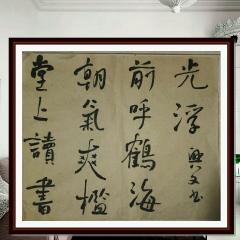 堂上讀書
朝氣爽檻
前呼鶴海
光浮
興文书